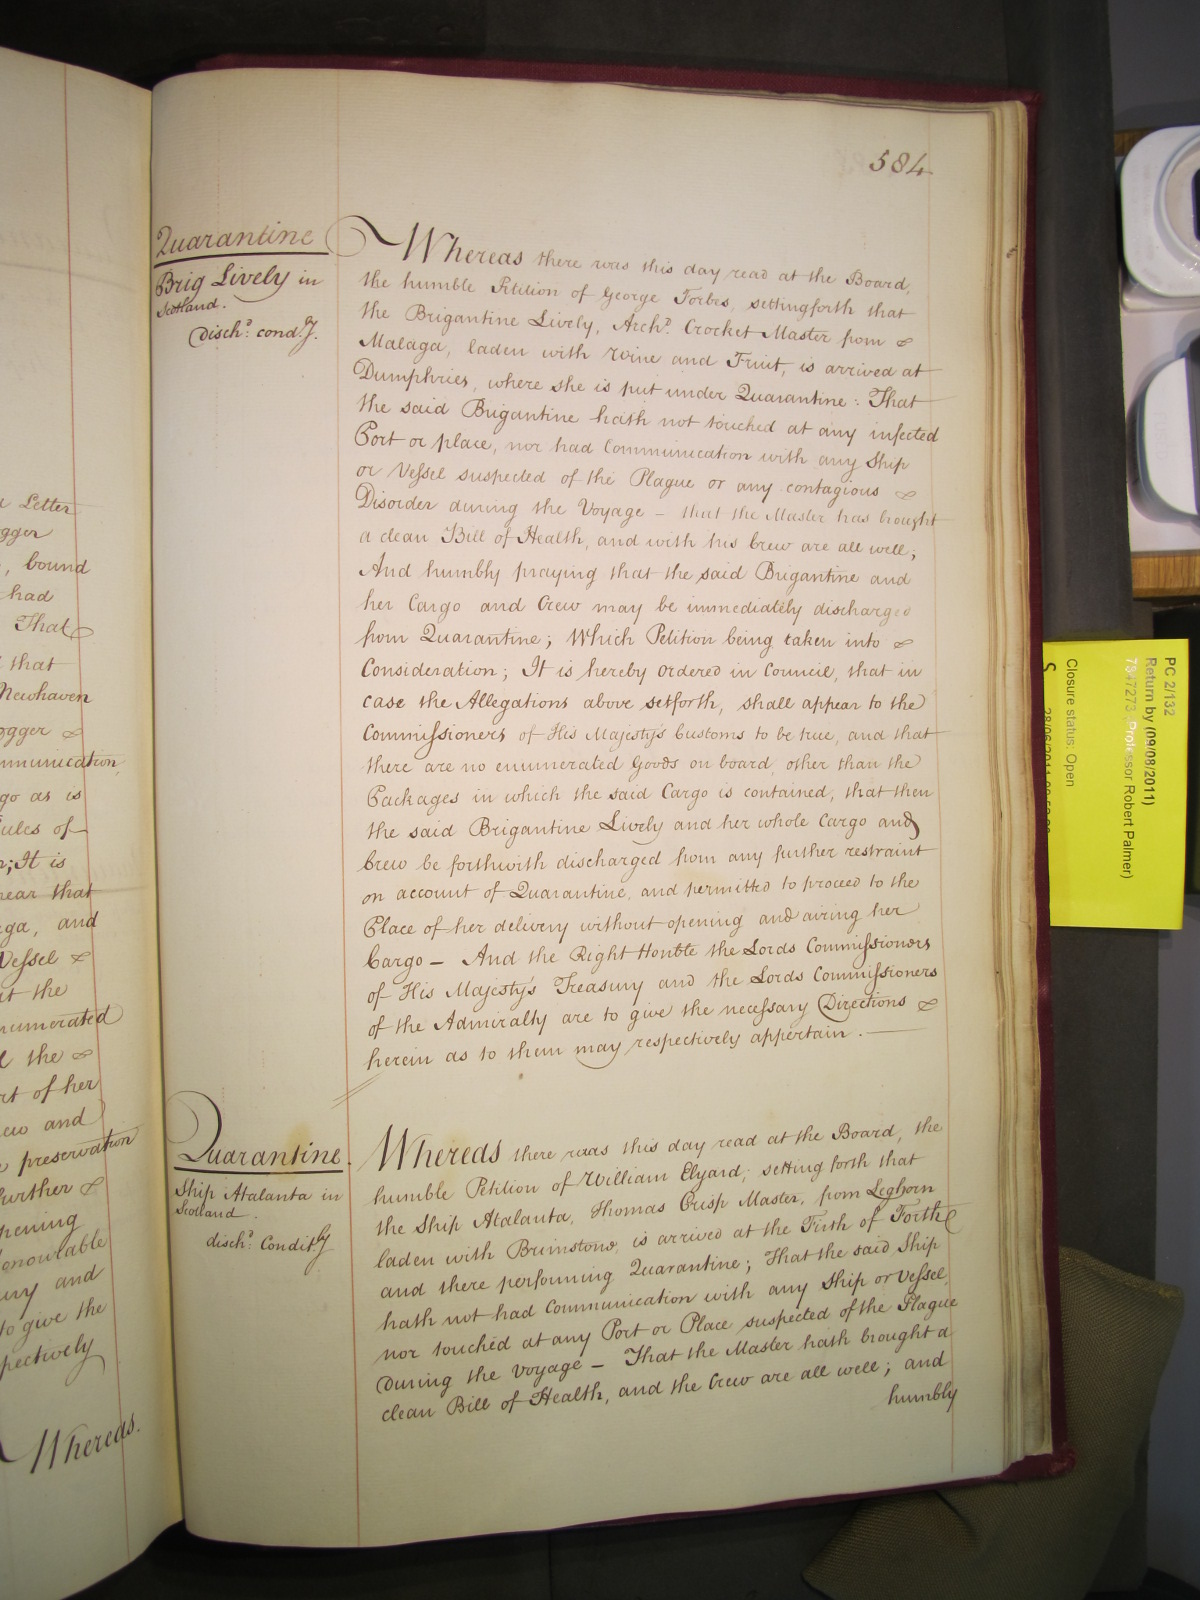 a Letter
bound
had
That
that
Newhaven
go as is
of
It is
that
and
Vessel &
the
the &
of her
and
preservation
further &
and
to give the
Whereas.
584
Quarantine
Brig Lively in
Scotland.
Disch.d cond.ly.
Whereas there was this day read at the Board,
the humble Petition of George Forbes, settingforth that
the Brigantine Lively, Arch.d Crocket Master from &
Malaga, laden with Wine and Fruit, is arrived at
Dumphries, where she is put under Quarantine: That
the said Brigantine hath not touched at any infected
Port or place, nor had Communication with any Ship
or Vessel suspected of the Plague or any contagious &
Disorder during the Voyage – that the Master has brought
a clean Bill of Health, and with his Crew are all well;
And humbly praying that the said Brigantine and
her Cargo and Crew may be immediately discharged
from Quarantine; Which Petition being taken into &
Consideration; It is hereby ordered in Council, that in
case the Allegations above setforth, shall appear to the
Commissioners of His Majesty's Customs to be true, and that
there are no enumerated Goods on board, other than the
Packages in which the said Cargo is contained, that then
the said Brigantine Lively and her whole Cargo and
Crew be forthwith discharged from any further restraint
on account of Quarantine, and permitted to proceed to the
Place of her delivery without opening and airing her
Cargo – And the Right Honble the Lords Commissioners
of His Majesty's Treasury and the Lords Commissioners
of the Admiralty are to give the necessary Directions &
herein as to them may respectively appertain. —
Quarantine.
Ship Atalanta in
Scotland.
disch.d Condit.ly
Whereas there was this day read at the Board, the
humble Petition of William Elyard, setting forth that
the Ship Atalanta, Thomas Crisp Master, from Leghorn
laden with Brimstone, is arrived at the Firth of Forth
and there performing Quarantine; That the said Ship
hath not had Communication with any Ship or Vessel,
nor touched at any Port or Place suspected of the Plague
During the Voyage – That the Master hath brought a
clean Bill of Health, and the Crew are all well; and
humbly
PC 2/132
Return by (09/08/2011)
7347273 Professor Robert Palmer)
Closure status: Open
S